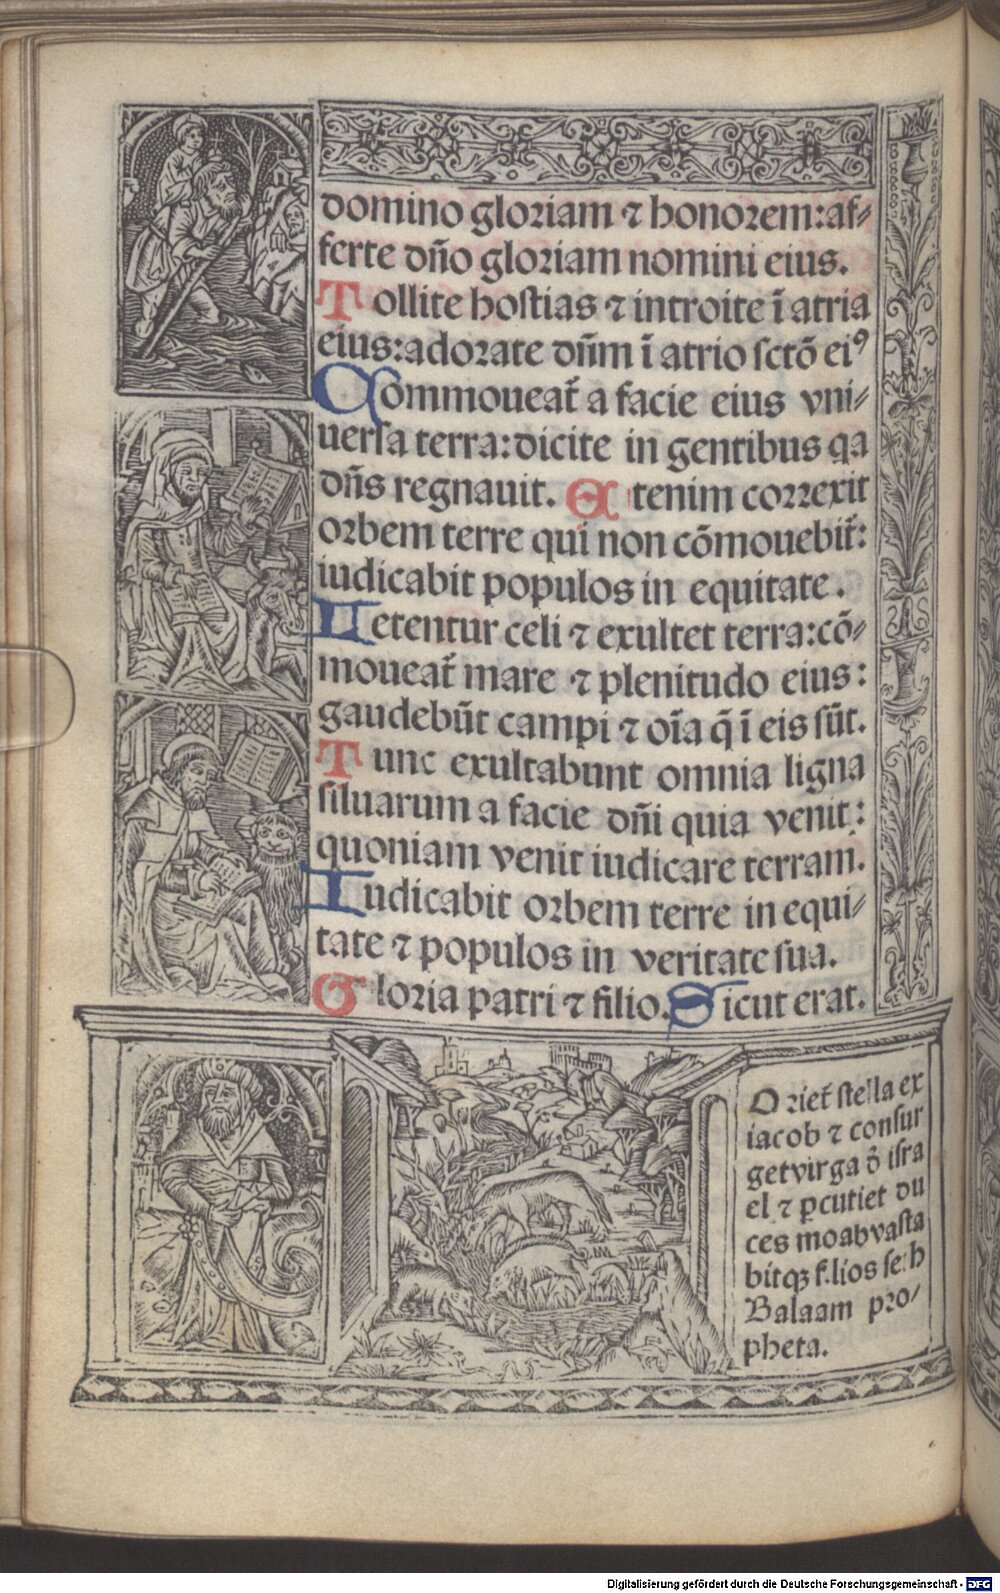 domino gloriam ⁊ honorem:af⸗
ferte dño gloriam nomini eius.
Tollite hostias ⁊ introite ĩ atria
eius:adorate dñm ĩ atrio sctõ eiꝰ
Commoueat᷑ a facie eius vni⸗
uersa terra:dicite in gentibus qa
dñs regnauit. Etenim correxit
orbem terre qui non cõmouebit᷑:
iudicabit populos in equitate.
Letentur celi ⁊ exultet terra:cõ⸗
moueat᷑ mare ⁊ plenitudo eius:
gaudebũt campi ⁊ oĩa q̃ ĩ eis sũt.
Tunc exultabunt omnia ligna
siluarum a facie dñi quia venit:
quoniam venit iudicare terram.
Iudicabit orbem terre in equi⸗
tate ⁊ populos in veritate sua.
Gloria patri ⁊ filio. Sicut erat.
Oriet᷑ stella ex
iacob ⁊ consur
getvirga õ isra
el ⁊ ꝑcutiet du
ces moabvasta
bitqꝫ filios seth
Balaam pro⸗
pheta.
Digitalisierung gefördert durch die Deutsche Forschungsgemeinschaft - DFG